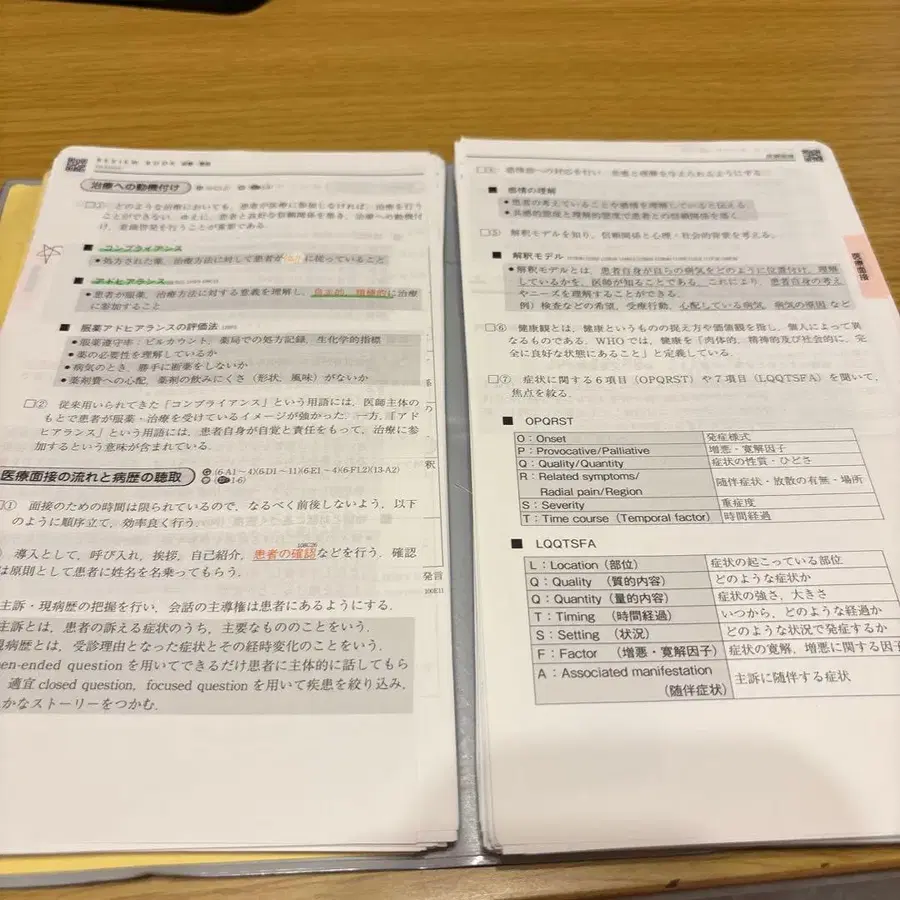 REVIEW BOOK
治療への動機付け
□① どのような治療においても，患者が医療に参加しなければ，治療を行う
ことができない．ゆえに，患者と良好な信頼関係を築き，治療への動機付
け，意識啓発を行うことが重要である．
■ コンプライアンス
●処方された薬，治療方法に対して患者が に従っていること
■ アドヒアランス
●患者が服薬，治療方法に対する意義を理解し，自主的，積極的に治療
に参加すること
■ 服薬アドヒアランスの評価法
●服薬遵守率：ピルカウント，薬局での処方記録，生化学的指標
●薬の必要性を理解しているか
●病気のとき，勝手に断薬をしないか
●薬剤費への心配，薬剤の飲みにくさ（形状，風味）がないか
□② 従来用いられてきた「コンプライアンス」という用語には，医師主体の
もとで患者が服薬・治療を受けているイメージが強かった．一方，「アド
ヒアランス」という用語には，患者自身が自覚と責任をもって，治療に参
加するという意味が含まれている．
医療面接の流れと病歴の聴取 G (6-A1～4)(6-D1～11)(6-E1～4)(6-FL2)(13-A2)
1-6)
□① 面接のための時間は限られているので，なるべく前後しないよう，以下
のように順序立て，効率良く行う．
導入として，呼び入れ，挨拶，自己紹介，患者の確認などを行う．確認
は原則として患者に姓名を名乗ってもらう．
発言
100E11
主訴・現病歴の把握を行い，会話の主導権は患者にあるようにする．
主訴とは，患者の訴える症状のうち，主要なもののことをいう．
現病歴とは，受診理由となった症状とその経時変化のことをいう．
en-ended questionを用いてできるだけ患者に主体的に話してもら
適宜closed question，focused questionを用いて疾患を絞り込み，
かなストーリーをつかむ．
医療面接
■ 感情の理解
●患者の考えていることや感情を理解していると伝える
●共感的態度と理解的態度で患者との信頼関係を築く
□⑤ 解釈モデルを知り，信頼関係と心理・社会的背景を考える．
■ 解釈モデル
●解釈モデルとは，患者自身が自らの病気をどのように位置付け，理解
しているかを，医師が知ることである．これにより，患者自身の考え
やニーズを理解することができる．
例）検査などの希望，受療行動，心配している病気，病気の原因 など
□⑥ 健康観とは，健康というものの捉え方や価値観を指し，個人によって異
なるものである．WHOでは，健康を「肉体的，精神的及び社会的に，完
全に良好な状態にあること」と定義している．
□⑦ 症状に関する6項目（OPQRST）や7項目（LQQTSFA）を聞いて，
焦点を絞る．
■ OPQRST
O：Onset 発症様式
P：Provocative/Palliative 増悪・寛解因子
Q：Quality/Quantity 症状の性質・ひどさ
R：Related symptoms/ 随伴症状・放散の有無・場所
Radial pain/Region
S：Severity 重症度
T：Time course（Temporal factor） 時間経過
■ LQQTSFA
L：Location（部位） 症状の起こっている部位
Q：Quality （質的内容） どのような症状か
Q：Quantity（量的内容） 症状の強さ，大きさ
T：Timing （時間経過） いつから，どのような経過か
S：Setting （状況） どのような状況で発症するか
F：Factor （増悪・寛解因子） 症状の寛解，増悪に関する因子
A：Associated manifestation 主訴に随伴する症状
（随伴症状）